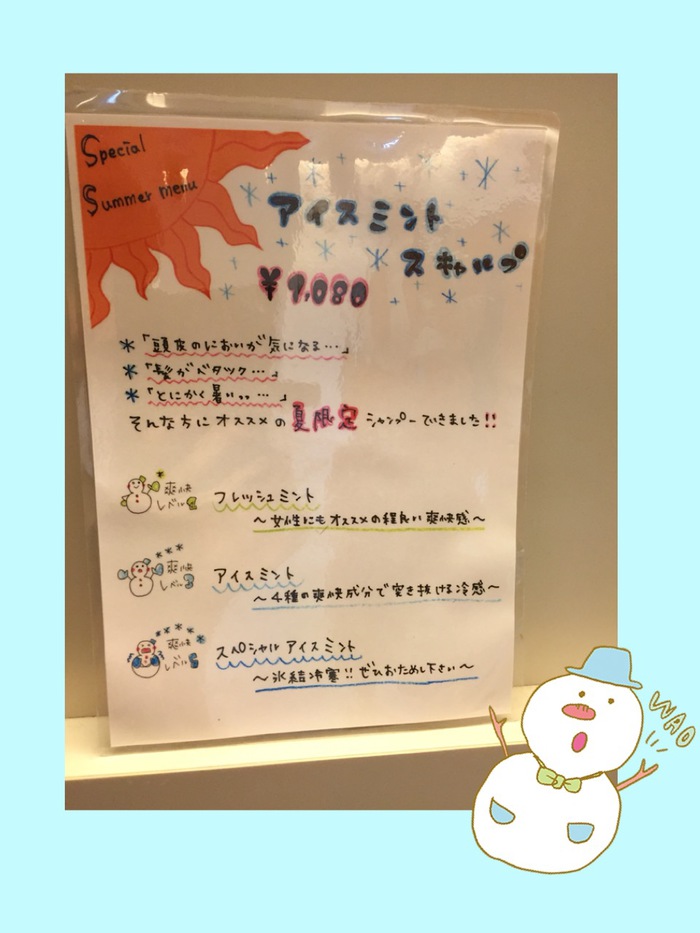 Special
Summer menu
アイスミント
スキャルプ
¥1,080
*「頭皮のにおいが気になる…」
*「髪がベタック…」
*「とにかく暑いっっ…」
そんな方にオススメの夏限定シャンプーできました!!
爽快
レベル
フレッシュミント
～女性にもオススメの程良い爽快感～
爽快
レベル3
アイスミント
～4種の爽快成分で突き抜ける冷感～
爽快
レベル5
スペシャルアイスミント
～氷結冷寒!!ぜひおためし下さい～
WAO